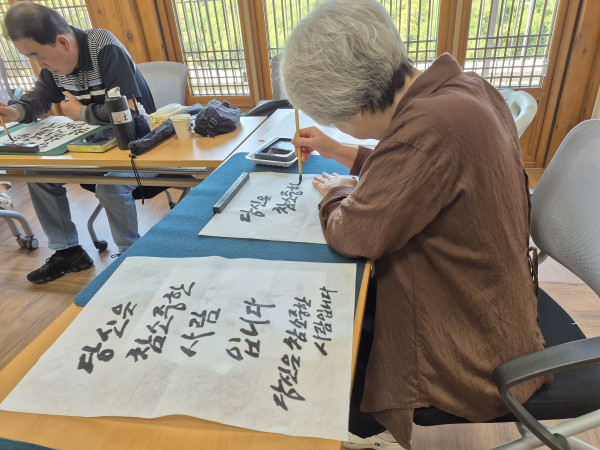 당신은
참소중한
당신은
참소중한
사람
입니다
당신은 참소중한
사람입니다